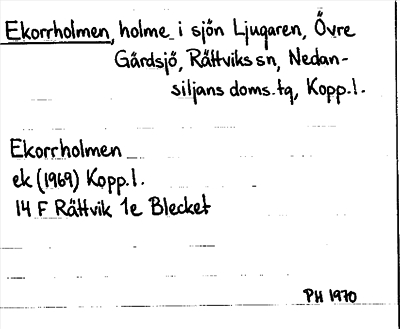 Ekorrholmen, holme i sjön Ljugaren, Övre
Gärdsjö, Rättviks sn, Nedan-
siljans doms.tg, Kopp.l.
Ekorrholmen
ek (1969) Kopp.l.
14 F Rättvik 1e Blecket
PH 1970